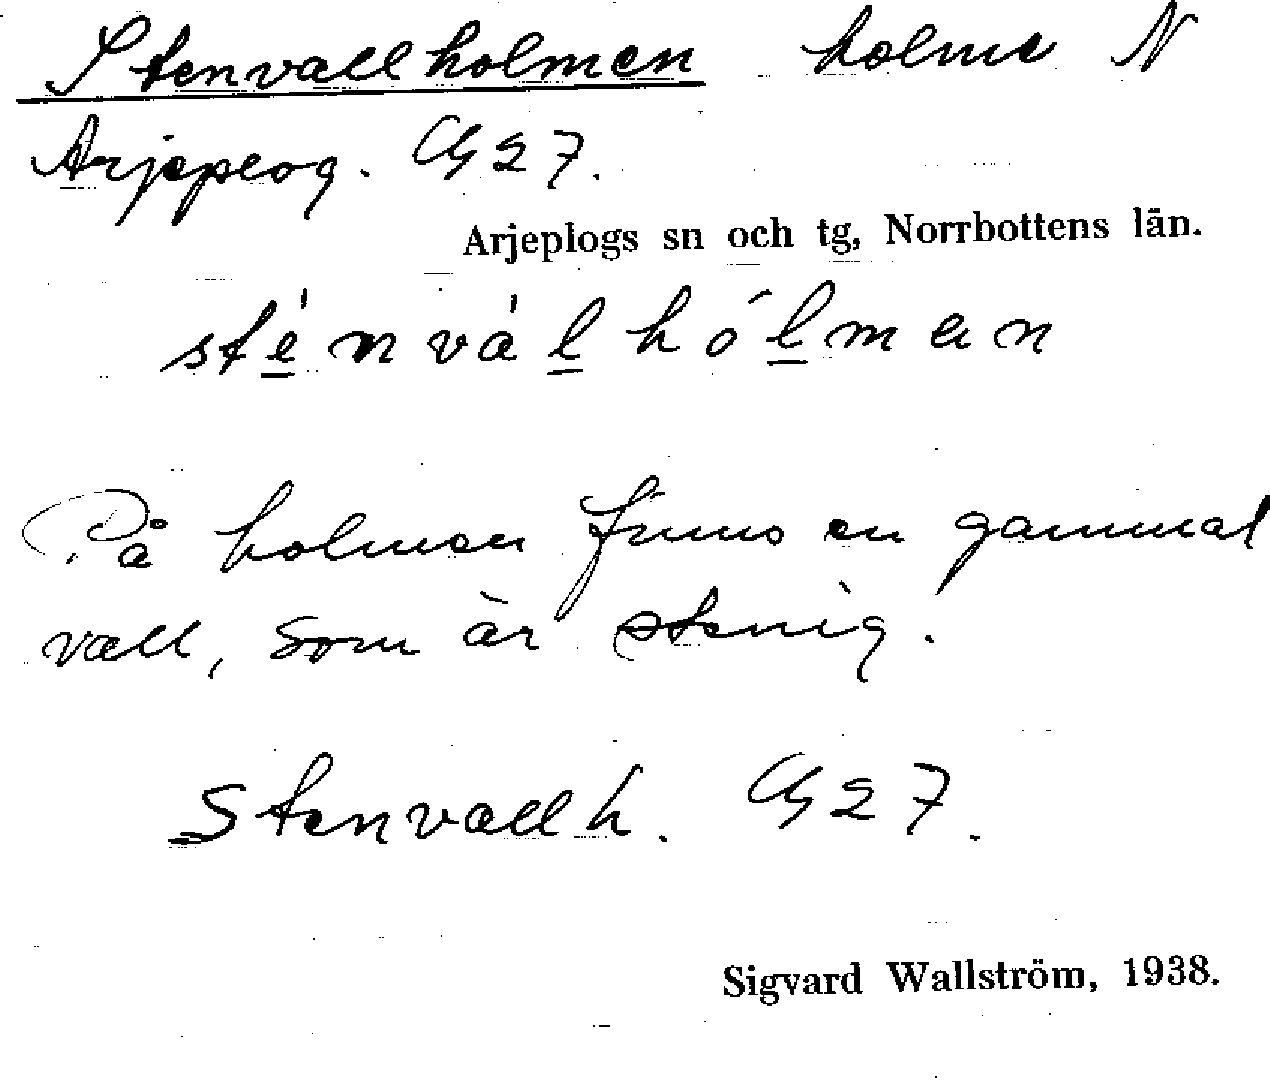 Stenvallholmen holme N
Arjeplog. G 27.
Arjeplogs sn och tg, Norrbottens län.
sténválhólmen
På holmen finns en gammal
vall, som är stenig.
Stenvallh. G 27.
Sigvard Wallström, 1938.